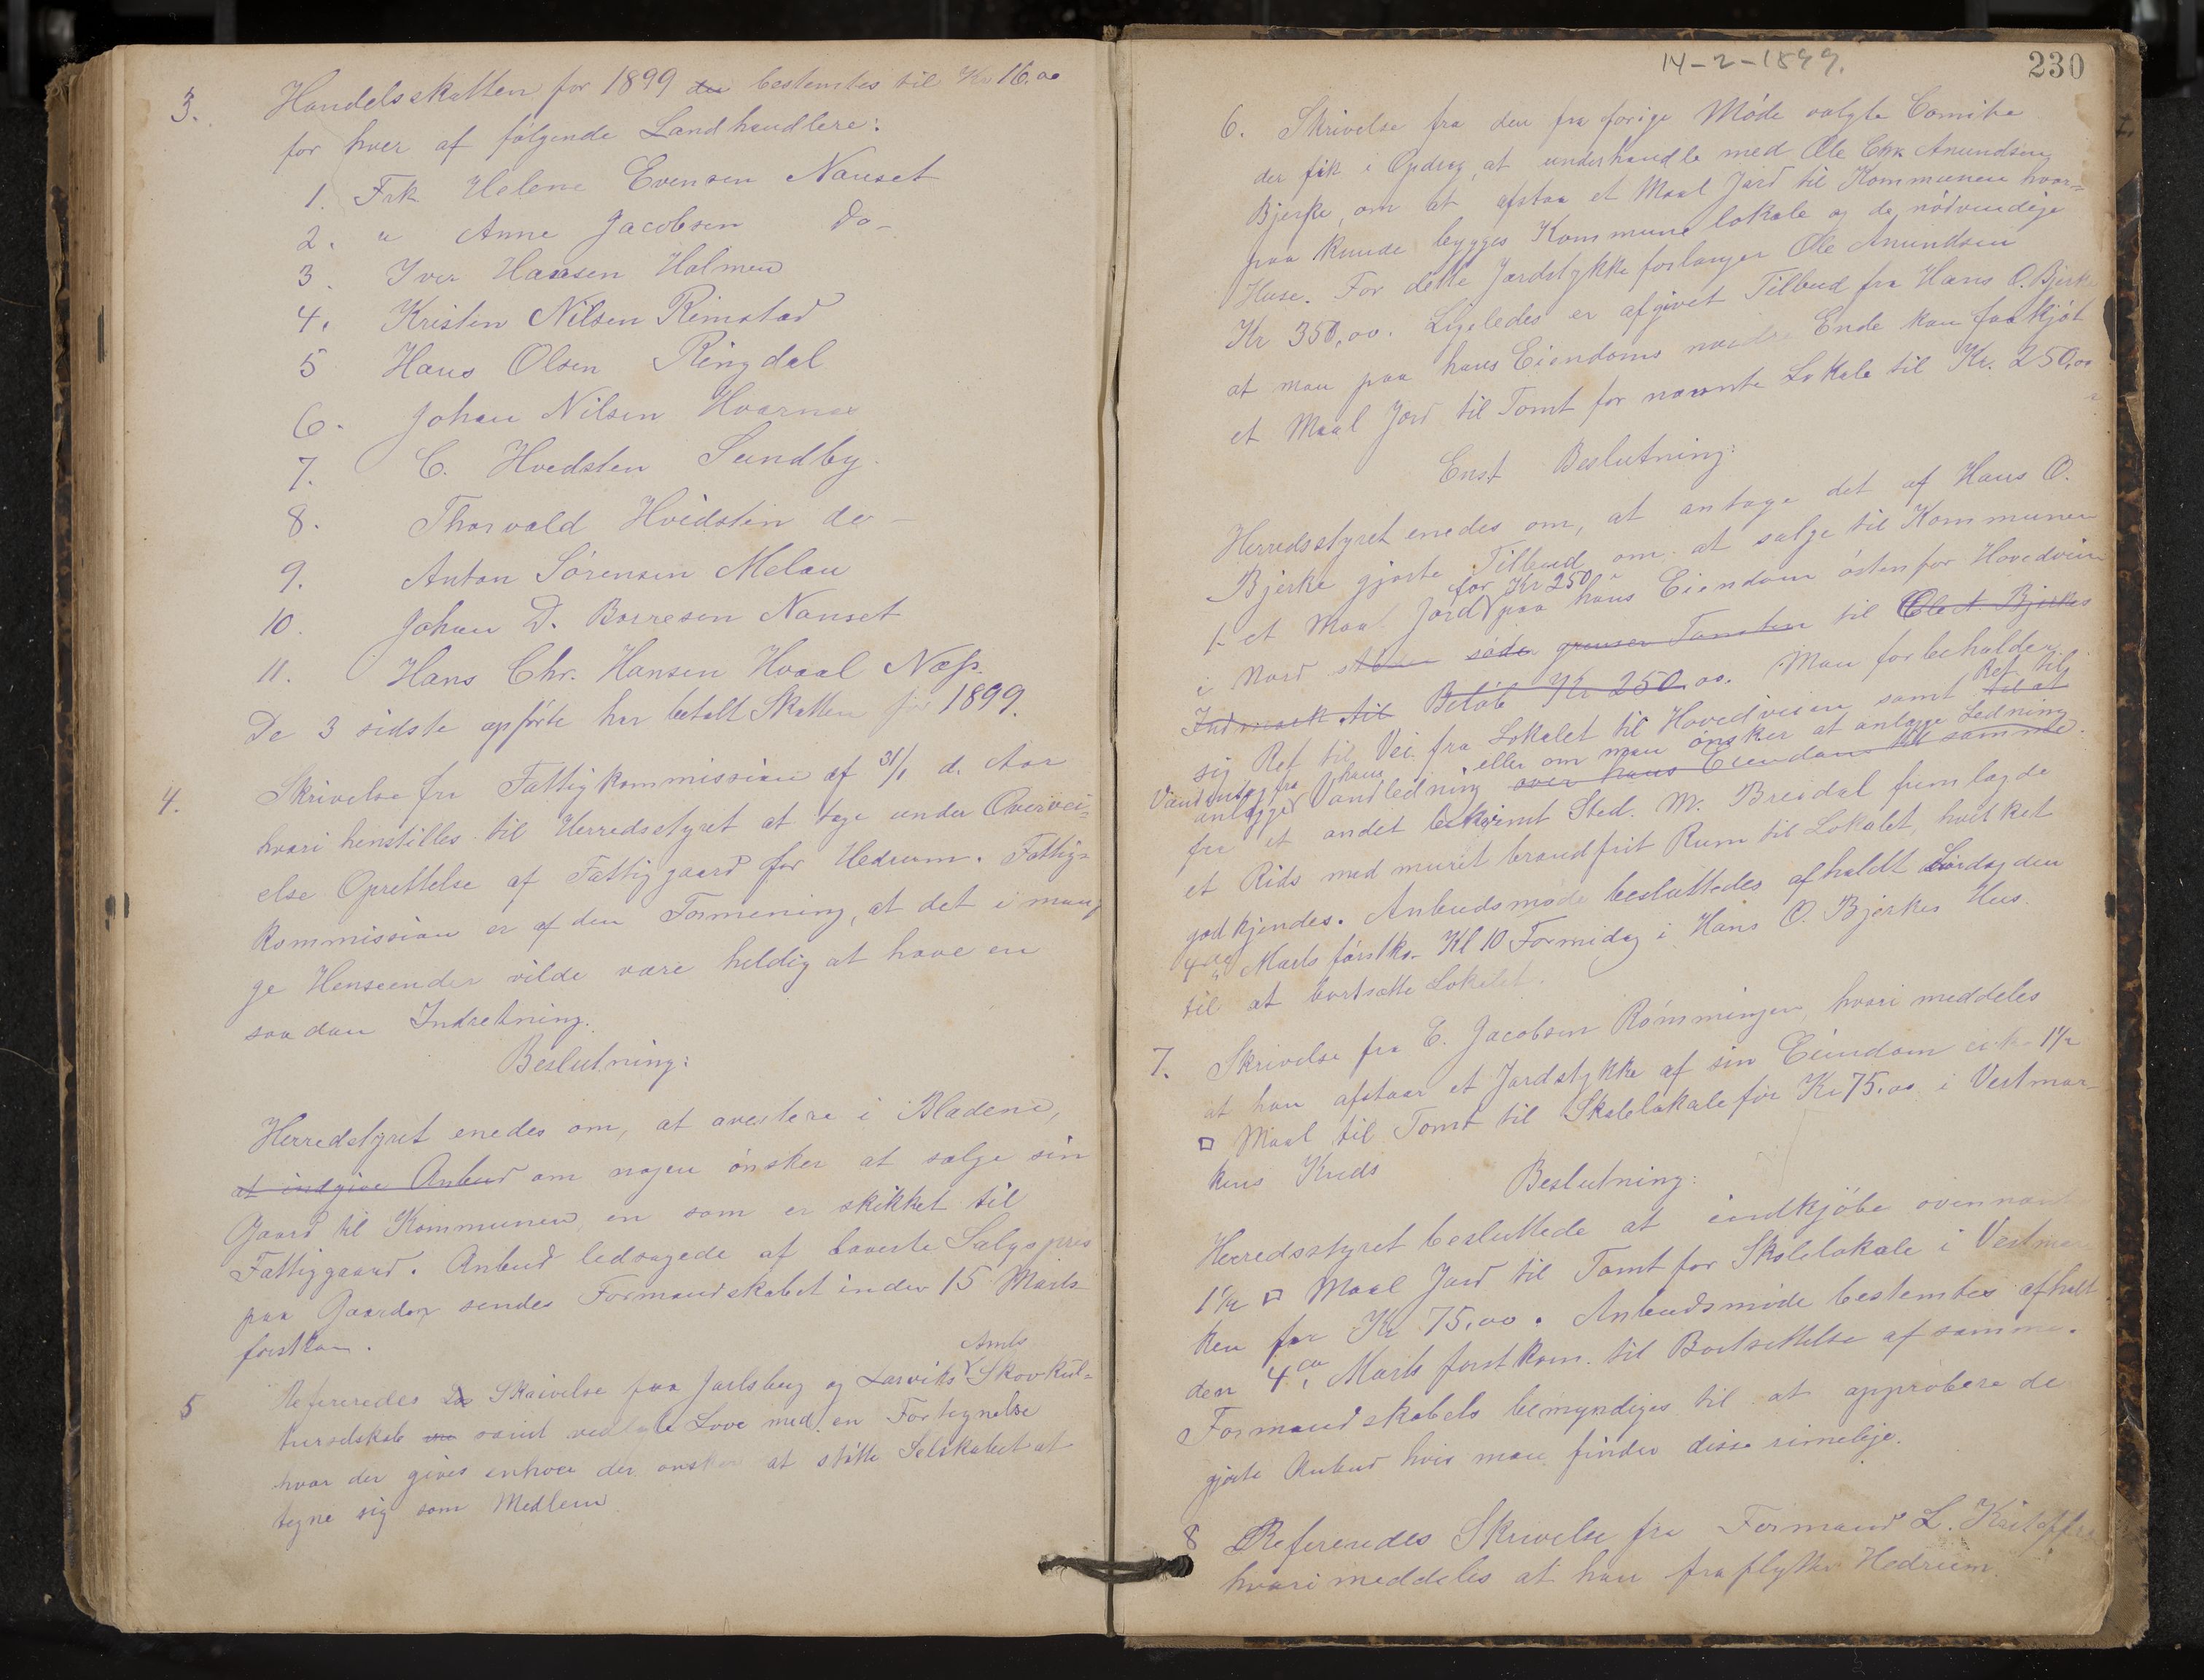 3. Handelsskatten for 1899 bestemtes til Kr 16.00
for hver af følgende Landhandlere:
1. Frk Helene Evensen Nanset
2. " Anne Jacobsen do-
3. Iver Hansen Holmen
4. Kristin Nilsen Rimstad
5 Hans Olsen Ringdal
6. Johan Nilsen Hvarnes
7. C. Hvedsten Sundby.
8. Thorvald Hvidstin do-
9. Anton Sørensen Melau
10. Johan D. Borresen Nanset
11. Hans Chr. Hansen Hvaal Næss.
De 3 sidste opførte har betalt Skatten for 1899.
4. Skrivelse fra Fattigkommission af 31/1 d. Aar
hvori henstilles til Herredsstyret at tage under Overvei=
else Oprettelse af Fattiggaard for Hedrum. Fattig=
kommission er af den Formening, at det i mang
ge Henseender vilde være heldig at have en
saadan Indretning.
Beslutning:
Herredstyret enedes om, at avertere i Bladene,
at indgive Anbud om nogen ønsker at sælge sin
Gaard til Kommunen, en som er skikket til
Fattiggaard. Anbud ledsagede af laveste Salgspris
paa Gaarden sendes Formandskabet inden 15 Marts
førstkom.
5 Refereredes Skrivelse fra Jarlsberg og Larviks Amts Skovkul=
turselskab samt vedlagte Love med en Fortegnelse
hvor der gives enhver der ønsker at støtte Selskabet at
tegne sig som Medlem
14-2-1899.
230
6. Skrivelse fra den fra forige Møde valgte Comite
der fik i Opdrag, at underhandle med Ole Chr. Anundsen
Bjerke, om at afstaa et Maal Jord til Kommunen hvor=
paa kunde bygges Kommunelokale og de nødvendige
Huse. For dette Jordstykke forlanger Ole Anundsen
Kr 350,00. Ligeledes er afgivet Tilbud fra Hans O. Bjerke
at man paa hans Eiendoms nordre Ende kan faa kjøbt
et Maal Jord til Tomt for nævnte Lokale til Kr. 250,00
Enst Beslutning:
Herredsstyret enedes om, at antage det af Hans O.
Bjerke gjorte Tilbud om at sælge til Kommunen
1- et Maal Jord for Kr 250 paa hans Eiendom østenfor Hovedveien
i Nord søden grensen Tomten til Ole A Bjerkes
til Beløb Kr 250.00. Man forbeholder
sig Ret til Vei fra Lokalet til Hovedveien samt Ret til at
Vandudtag fra anlægge hans Vandledning eller om man ønsker at anlægge Ledning
over hans Eiendom til samme.
fra et andet bekvemt Sted. M. Breidal fremlagde
et Rids med muret brandfrit Rum til Lokalet, hvilket
godkjendes. Anbudsmøde besluttedes afholdt Lørdag den
4de Marts førstk. Kl 10 Formidag i Hans O. Bjerkes Hus.
til at bortsætte Lokalet.
7. Skrivelse fra E. Jacobsen Rømmingen, hvori meddeles
at han afstaar et Jordstykke af sin Eiendom 1½
□ Maal til Tomt til Skolelokale for Kr 75.00 i Vestmar-
kens Kreds
Beslutning:
Herredsstyret besluttede at indkjøbe ovennævnte
1½ □ Maal Jord til Tomt for Skolelokale i Vestmar
ken for Kr 75.00. Anbudsmøde bestemtes afholt
den 4de Marts førstkom. til Bortsettelse af samme.
Formandskabets bemyndiges til at approbere de
gjorte Anbud hvis man finder disse rimelige.
8 Refereredes Skrivelse fra Formand L. Kristoffersen
hvori meddeles at han fraflytter Hedrum.